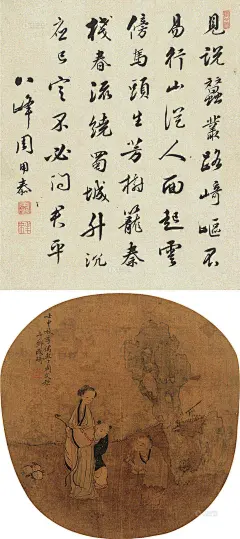 見說蠶叢路崎嶇不
易行山從人面起雲
傍馬頭生芳樹籠秦
棧春流繞蜀城升沉
應已定不必問君平
八峰周用